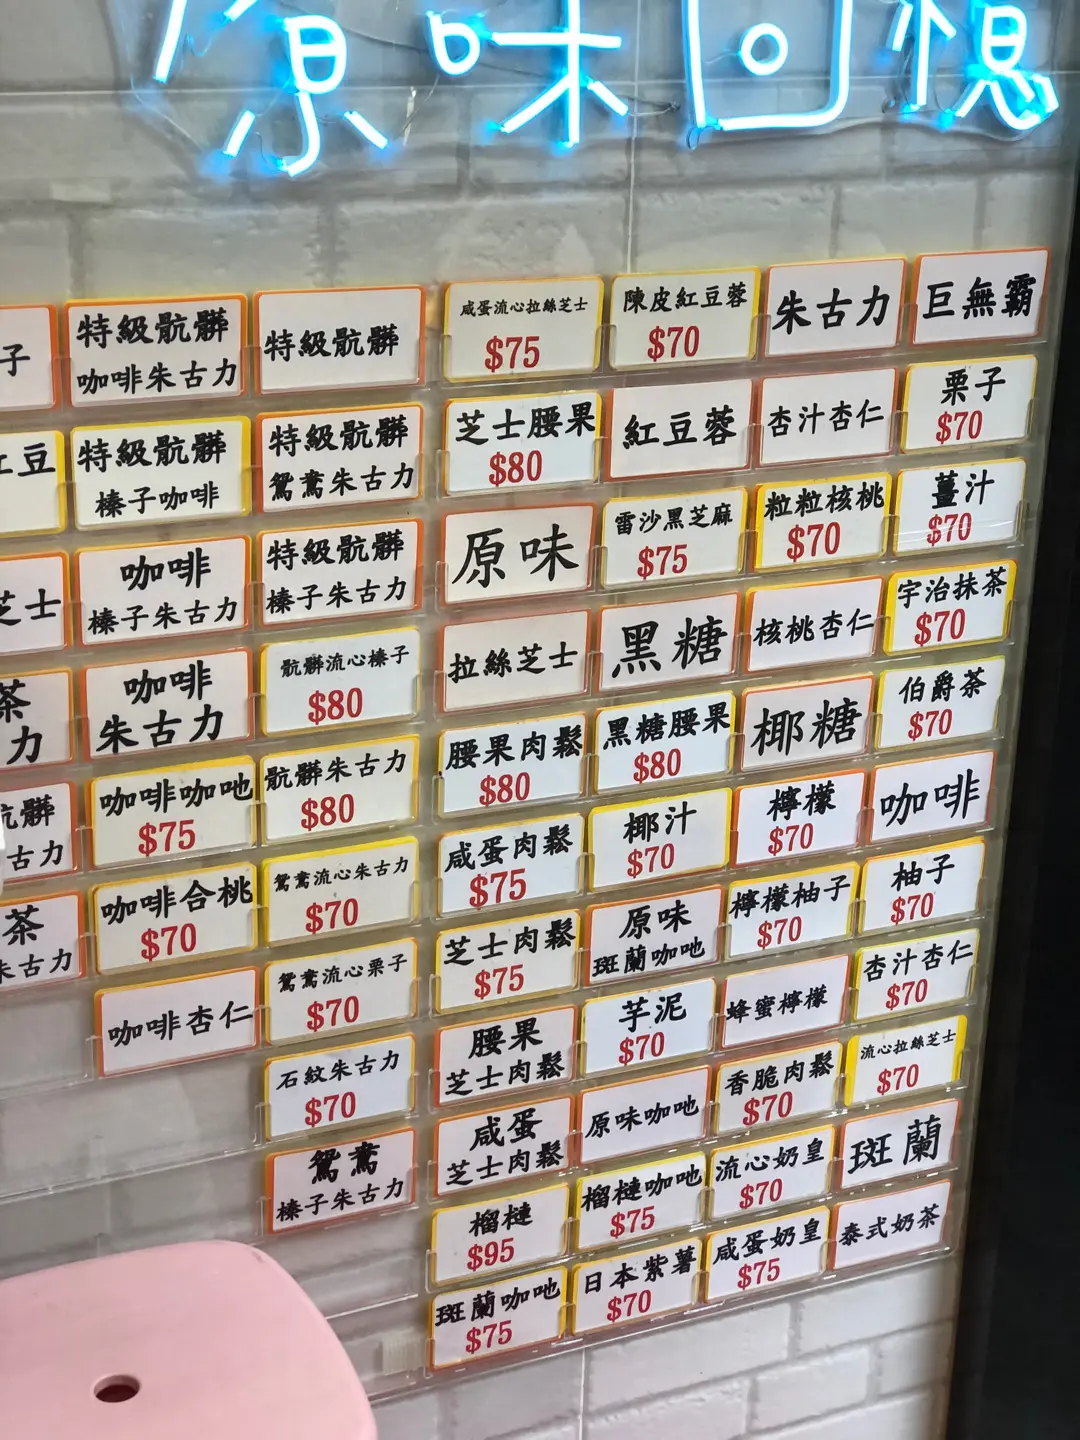 原味回憶
子
特級骯髒
咖啡朱古力
特級骯髒
咸蛋流心拉絲芝士
$75
陳皮紅豆蓉
$70
朱古力
巨無霸
豆
特級骯髒
榛子咖啡
特級骯髒
鴛鴦朱古力
芝士腰果
$80
紅豆蓉
杏汁杏仁
栗子
$70
芝士
咖啡
榛子朱古力
特級骯髒
榛子朱古力
原味
雷沙黑芝麻
$75
粒粒核桃
$70
薑汁
$70
茶
力
咖啡
朱古力
骯髒流心榛子
$80
拉絲芝士
黑糖
核桃杏仁
宇治抹茶
$70
骯髒
古力
咖啡咖吔
$75
骯髒朱古力
$80
腰果肉鬆
$80
黑糖腰果
$80
椰糖
伯爵茶
$70
茶
朱古力
咖啡合桃
$70
鴛鴦流心朱古力
$70
咸蛋肉鬆
$75
椰汁
$70
檸檬
$70
咖啡
咖啡杏仁
鴛鴦流心栗子
$70
芝士肉鬆
$75
原味
斑蘭咖吔
檸檬柚子
$70
柚子
$70
石紋朱古力
$70
腰果
芝士肉鬆
芋泥
$70
蜂蜜檸檬
杏汁杏仁
$70
鴛鴦
榛子朱古力
咸蛋
芝士肉鬆
原味咖吔
香脆肉鬆
$70
流心拉絲芝士
$70
榴槤
$95
榴槤咖吔
$75
流心奶皇
$70
斑蘭
斑蘭咖吔
$75
日本紫薯
$70
咸蛋奶皇
$75
泰式奶茶